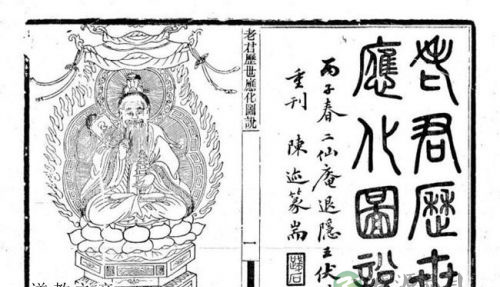 老君歷世
應化圖說
丙子春二仙庵退隱王伏
重刊 陳迹篆耑
老君歷世應化圖說
一
道教